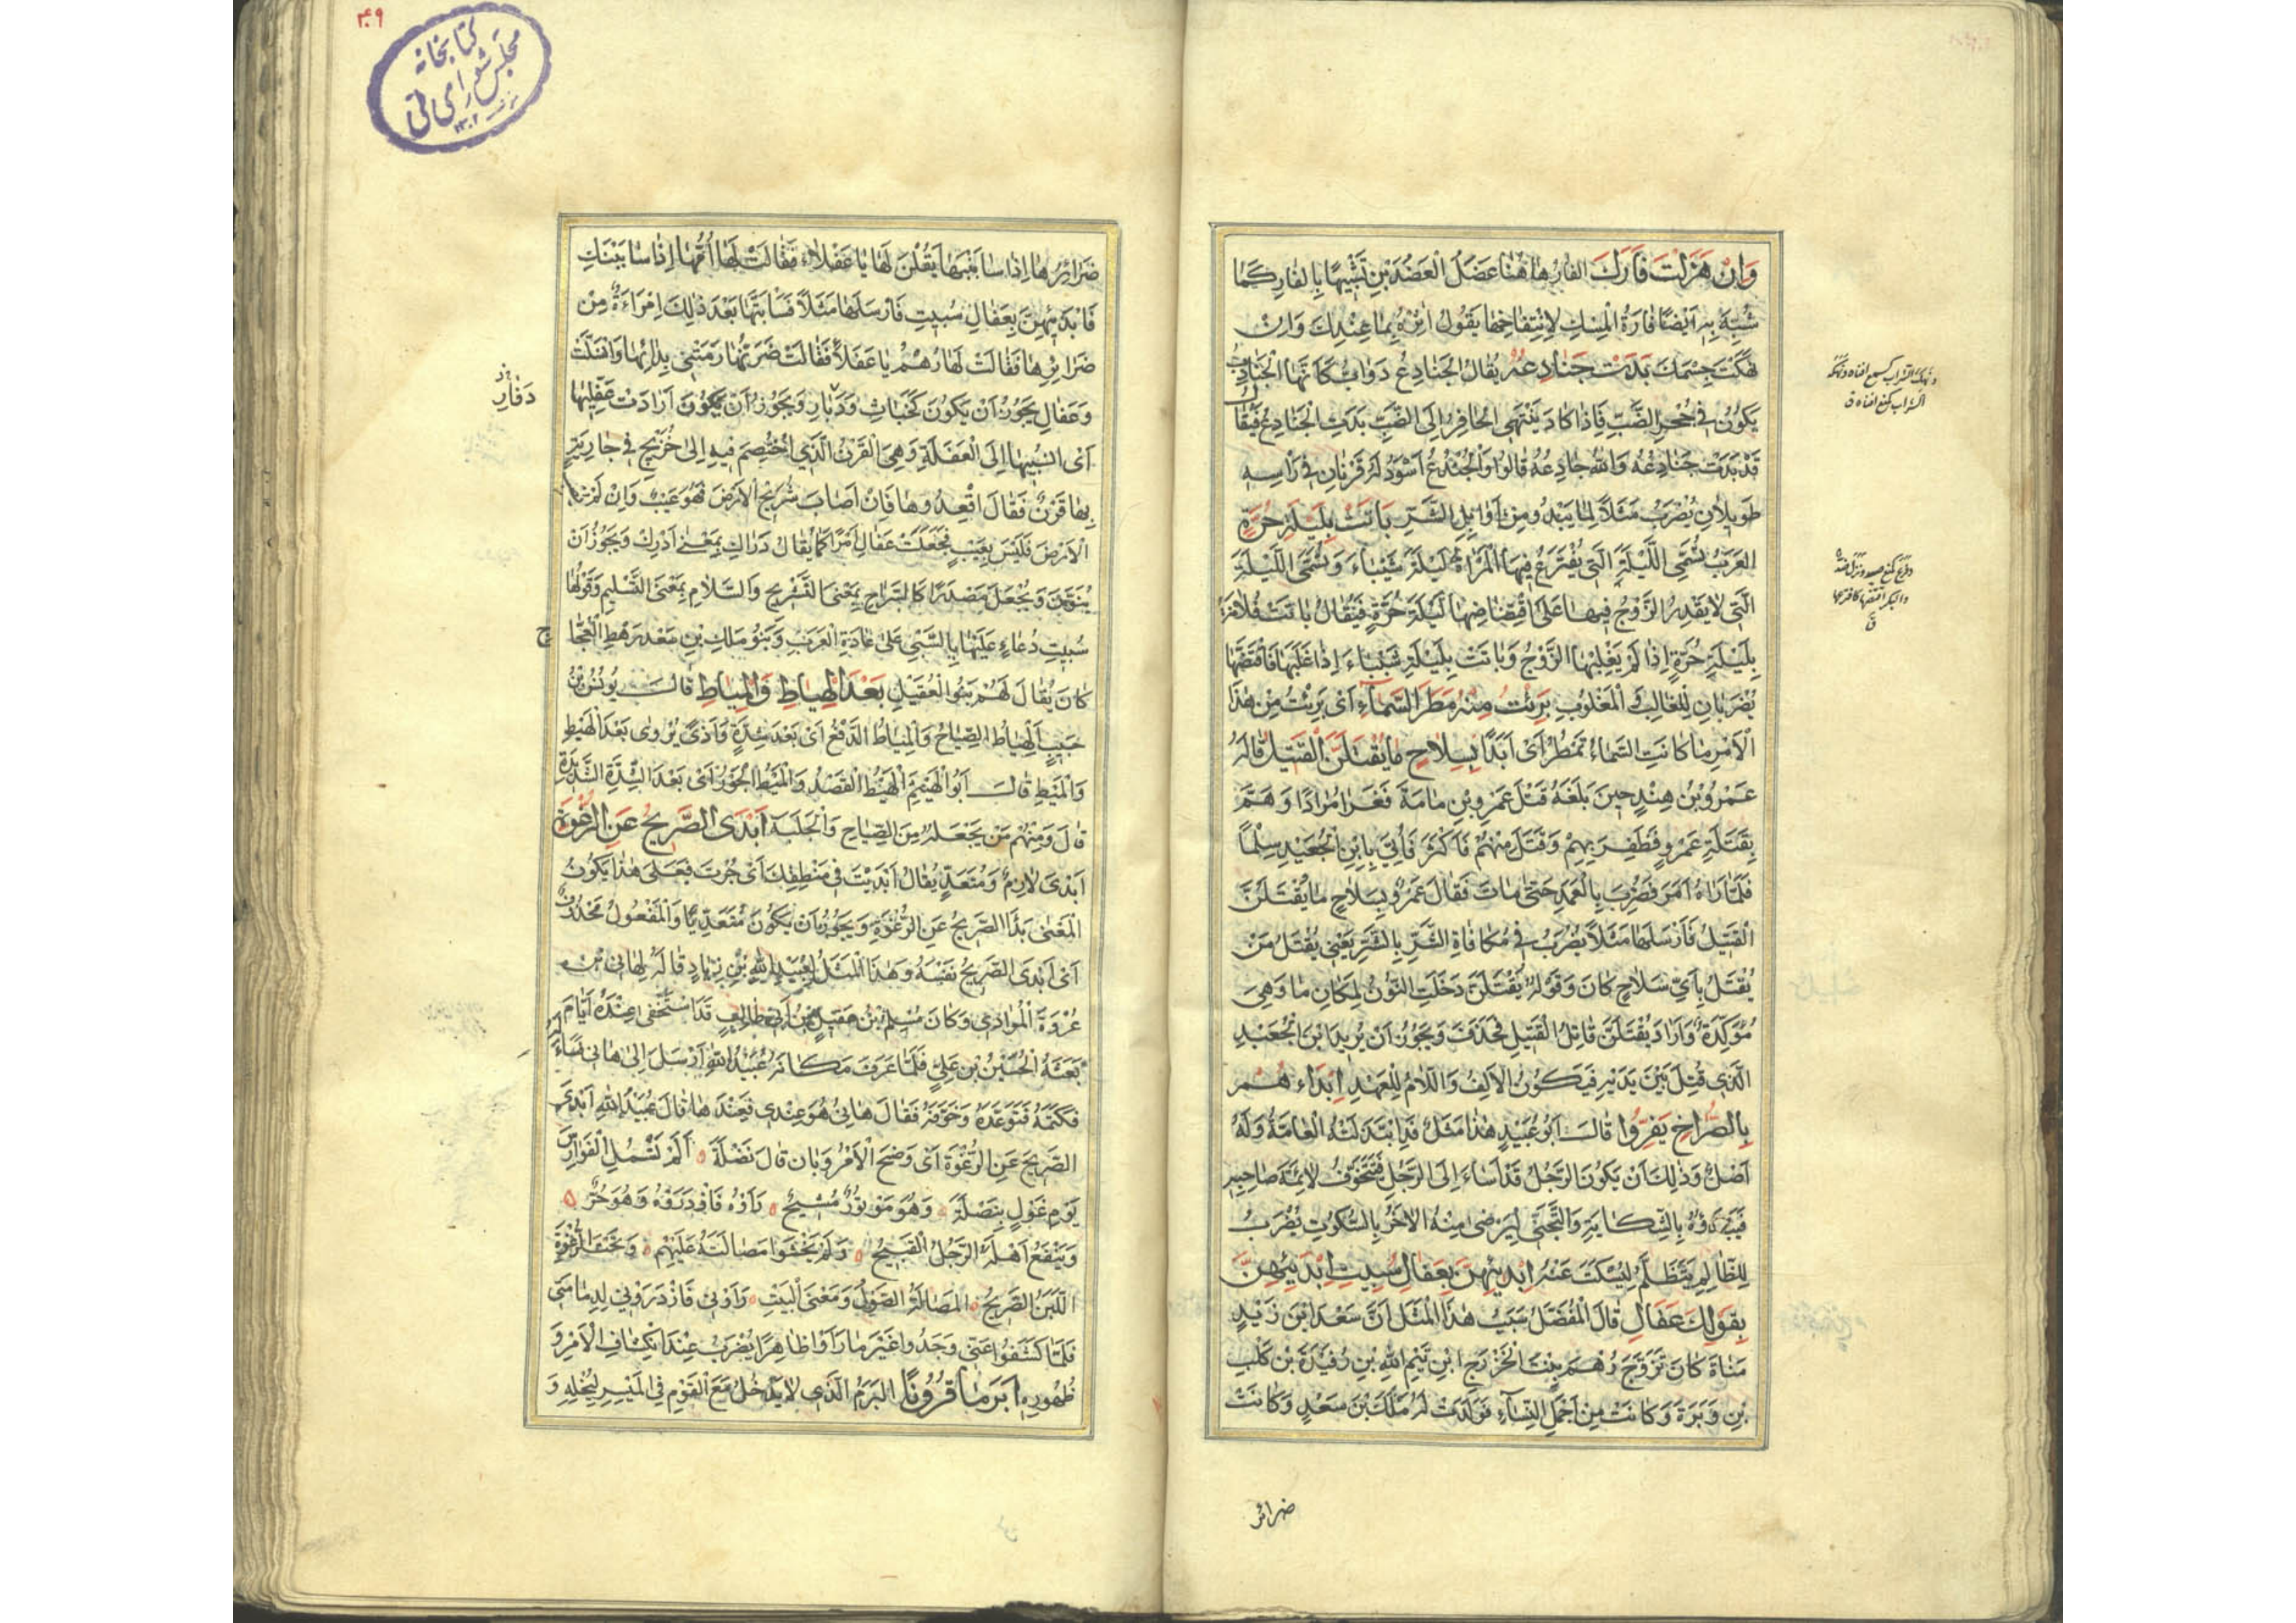 وَاِنْ هَزَلَتْ فَاَرَكَ الفار هٰاهُنٰا عَضَلَ الْعَضُدَيْنِ تَشْبِيهًا بِالفارِ كَمٰا
شُبِّهَ بِهِ اَيْضًا فٰارَةُ الْمِسْكِ لِانْتِفٰاخِهٰا يَقُولُ اٰثِرْهُ بِمٰا عِنْدِكَ وَاِنْ
نَهَكْتَ جِسْمَكَ بَدَتْ جَنٰادِعُهُ يُقٰالُ الْجَنٰادِعُ دَوَابُّ كَاَنَّهٰا الْجَنٰادِبُ
يَكُونُ فِى جُحْرِ الضَّبِّ فَاِذٰا كٰادَ يَنْتَهِى الْحٰافِرُ اِلَى الضَّبِّ بَدَتِ الْجَنٰادِعُ فَيُقٰالُ
قَدْ بَدَتْ جَنٰادِعُهُ وَاللّٰهُ جٰادِعُهُ قٰالُوا وَالْجُنْدُعُ اَسْوَدُ لَهُ قَرْنٰانِ فِى رَاْسِهِ
طَوِيلاٰنِ يُضْرَبُ مَثَلاً لِمٰا يَبْدُو مِنْ اَوَائِلِ الشَّرِّ بٰاتَتْ بِلَيْلَةِ حُرَّةٍ
العَرَبُ تُسَمِّى اللَّيْلَةَ الَّتِى يُفْتَرَعُ فِيهَا الْمَرْاَةُ لَيْلَةَ شَيْبٰاءَ وَتُسَمَّى اللَّيْلَةَ
الَّتِى لاٰ يَقْدِرُ الزَّوْجُ فِيهٰا عَلَى اقْتِضٰاضِهٰا لَيْلَةَ حُرَّةٍ فَيُقٰالُ بٰاتَتْ فُلاٰنَةُ
بِلَيْلَةِ حُرَّةٍ اِذٰا لَمْ يَغْلِبْهَا الزَّوْجُ وَبٰاتَتْ بِلَيْلَةِ شَيْبٰاءَ اِذٰا غَلَبَهٰا فَاقْتَضَّهٰا
يُضْرَبٰانِ لِلْغٰالِبِ وَ الْمَغْلُوبِ بَرِئْتُ مِنْهُ مَطَرَ السَّمٰاءِ اَىْ بَرِئْتُ مِنْ هٰذَا
الْاَمْرِ مٰا كٰانَتِ السَّمٰاءُ تَمْطُرُ اَىْ اَبَدًا بِسِلاٰحٍ مٰا يُقْتَلَنَّ الْقَتِيلُ قٰالَهُ
عَمْرُو بْنُ هِنْدٍ حِينَ بَلَغَهُ قَتْلُ عَمْرِو بْنِ مٰامَةَ فَغَزٰا مُرٰادًا وَهَمَّ
بِقَتَلَةِ عَمْرٍو فَظَفِرَ بِهِمْ وَقَتَلَ مِنْهُمْ فَاَكْثَرَ فَاُتِىَ بِابْنِ الْجُعَيْدِ سِلْمًا
فَلَمّٰا رَاٰهُ اَمَرَ فَضُرِبَ بِالْعَمَدِ حَتّٰى مٰاتَ فَقٰالَ عَمْرٌو بِسِلاٰحٍ مٰا يُقْتَلَنَّ
الْقَتِيلُ فَاَرْسَلَهٰا مَثَلاً يُضْرَبُ فِى مُكٰافٰاةِ الشَّرِّ بِالشَّرِّ يَعْنِى يُقْتَلُ مَنْ
يُقْتَلُ بِاَىِّ سِلاٰحٍ كٰانَ وَقَوْلُهُ يُقْتَلَنَّ دَخَلَتِ النُّونُ لِمَكٰانِ مٰا وَهِىَ
مُؤَكِّدَةٌ وَاَرٰادَ يُقْتَلَنَّ قٰاتِلُ الْقَتِيلِ فَحَذَفَ وَيَجُوزُ اَنْ يُرِيدَ ابْنَ الْجُعَيْدِ
الَّذِى قُتِلَ بَيْنَ يَدَيْهِ فَيَكُونُ الْاَلِفُ وَاللّاٰمُ لِلْعَهْدِ اِبْدَاء هُمْ
بِالصُّرٰاخِ يَفِرُّوا قٰالَ اَبُو عُبَيْدٍ هٰذٰا مَثَلٌ قَدِ ابْتَذَلَتْهُ الْعٰامَّةُ وَلَهُ
اَصْلٌ وَذٰلِكَ اَنْ يَكُونَ الرَّجُلُ قَدْ اَسٰاءَ اِلَى الرَّجُلِ فَتَخَوَّفُ لاٰئِمَّةَ صٰاحِبِهِ
فَيَبْدَؤُهُ بِالشِّكٰايَةِ وَالتَّجَنِّى لِيَرْضٰى مِنْهُ الْاٰخَرُ بِالسُّكُوتِ يُضْرَبُ
لِلظّٰالِمِ يَتَظَلَّمُ لِيُسْكَتَ عَنْهُ اِبْدَئِيهِنَّ بِعَفٰالِ سُبِيتِ اِبْدَئِيهِنَّ
بِقَوْلِكَ عَفٰالِ قٰالَ الْمُفَضَّلُ سَبَبُ هٰذَا الْمَثَلِ اَنَّ سَعْدَ ابْنَ زَيْدِ
مَنٰاةَ كٰانَ تَزَوَّجَ رُهْمَ بِنْتَ الْخَزْرَجِ ابْنِ تَيْمِ اللّٰهِ بْنِ رُفَيْدَةَ بْنِ كَلْبِ
بْنِ وَبَرَةَ وَكٰانَتْ مِنْ اَجْمَلِ النِّسٰاءِ فَوَلَدَتْ لَهُ مٰلِكَ بْنَ سَعْدٍ وَكٰانَتْ
ضرائر
۳۰۹
كتابخانه
مجلس شورای ملی
ضَرٰائِرُهٰا اِذٰا سٰابَبْنَهٰا يَقُلْنَ لَهٰا يٰا عَفْلاٰء فَقٰالَتْ لَهٰا اُمُّهٰا اِذٰا سٰابَبْنَكِ
فَابْدَئِيهِنَّ بِعَفٰالِ سُبِيتِ فَاَرْسَلَهٰا مَثَلاً فَسٰابَّتْهٰا بَعْدَ ذٰلِكَ اِمْرَاَةٌ مِنْ
ضَرٰائِرِهٰا فَقٰالَتْ لَهٰا رُهْمُ يٰا عَفَلاً فَقٰالَتْ ضَرَّتُهٰا رَمَتْنِى بِدٰائِهٰا وَانْسَلَّتْ
وَعَفٰالِ يَجُوزُ اَنْ يَكُونَ كَخَبٰاثِ وَدَفٰارِ وَيَجُوزُ اَنْ يَكُونَ اَرٰادَتْ عَفِّلِيهٰا
دَفٰارِ
اَىِ انْسُبِيهٰا اِلَى الْعَفَلَةِ وَهِىَ الْقَرْنُ الَّذِى اخْتُصِمَ فِيهِ اِلٰى شُرَيْحٍ فِى جٰارِيَةٍ
بِهٰا قَرْنٌ فَقٰالَ اَقْعِدُوهٰا فَاِنْ اَصٰابَ الْاَرْضَ فَهُوَ عَيْبٌ وَاِنْ لَمْ
الْاَرْضَ فَلَيْسَ بِعَيْبٍ فَجَعَلَتْ عَفٰالِ اَمْرًا كَمٰا يُقٰالُ دَرٰاكِ بِمَعْنٰى اَدْرِكْ وَيَجُوزُ اَنْ
يُنَوَّنَ وَيُجْعَلَ مَصْدَرًا كَالسَّرٰاحِ بِمَعْنَى التَّسْرِيحِ وَالسَّلاٰمِ بِمَعْنَى التَّسْلِيمِ وَقَوْلُهٰا
سُبِيتِ دُعٰاءٍ عَلَيْهٰا بِالسَّبْىِ عَلٰى عٰادَةِ الْعَرَبِ وَبَنُو مٰلِكِ بْنِ سَعْدٍ رَهْطِ الْعَجّٰا
ج
كٰانَ يُقٰالُ لَهُمْ بَنُو الْعُفَيْلِ بَعْدَ الْهِيٰاطِ وَالْمِيٰاطِ قٰالَ يُونُسُ بْنُ
حَبِيبٍ الْهِيٰاطُ الصِّيٰاحُ وَالْمِيٰاطُ الدَّفْعُ اَىْ بَعْدَ شِدَّةٍ وَاَذًى يُرْوٰى بَعْدَ الْهَيْطِ
وَالْمَيْطِ قٰالَ اَبُو الْهَيْثَمِ الْهَيْطُ الْقَصْدُ وَالْمَيْطُ الْجَوْرُ اَىْ بَعْدَ الشِّدَّةِ الشَّدِيدَةِ
قٰالَ وَمِنْهُمْ مَنْ يَجْعَلُهُ مِنَ الصِّيٰاحِ وَالْجَلَبَةِ اَبْدَى الصَّرِيحُ عَنِ الرُّغْوَةِ
اَبْدٰى لاٰزِمٌ وَمُتَعَدٍّ يُقٰالُ اَبْدَيْتَ فِى مَنْطِقِكَ اَىْ جُرْتَ فَعَلٰى هٰذٰا يَكُونُ
الْمَعْنٰى بَدَا الصَّرِيحُ عَنِ الرُّغْوَةِ وَيَجُوزُ اَنْ يَكُونَ مُتَعَدِّيًا وَالْمَفْعُولُ مَحْذُوفٌ
اَىْ اَبْدَى الصَّرِيحُ نَفْسَهُ وَهٰذَا الْمَثَلُ لِعُبَيْدِ اللّٰهِ بْنِ زِيٰادٍ قٰالَهُ لِهٰانِى بْنِ
عُرْوَةَ الْمُرٰادِى وَكٰانَ مُسْلِمُ بْنُ عَقِيلِ بْنِ اَبِى طٰالِبٍ قَدِ اسْتَخْفٰى عِنْدَهُ اَيّٰامَ
بَعَثَهُ الْحُسَيْنُ بْنُ عَلِىٍّ فَلَمّٰا عَرَفَ مَكٰانَهُ عُبَيْدُ اللّٰهِ اَرْسَلَ اِلٰى هٰانِى فَسَاَلَهُ
فَكَتَمَهُ فَتَوَعَّدَهُ وَخَوَّفَهُ فَقٰالَ هٰانِئُ هُوَ عِنْدِى فَعِنْدَهٰا قٰالَ عُبَيْدُ اللّٰهِ اَبْدَى
الصَّرِيحُ عَنِ الرُّغْوَةِ اَىْ وَضَحَ الْاَمْرُ وَبٰانَ قٰالَ نَضْلَةُ ۵ اَلَمْ تَسْئَلِ الْفَوٰارِسَ
يَوْمَ غَوْلٍ بِنَضْلَةَ ۵ وَهُوَ مَوْتُورٌ مُشِيحُ ۵ رَاَوْهُ فَازْدَرَوْهُ وَهُوَ حُرٌّ ۵
وَيَنْفَعُ اَهْلَهُ الرَّجُلُ الْقَبِيحُ ۵ وَلَمْ يَخْشَوْا مَصٰالَتَهُ عَلَيْهِمْ ۵ وَتَحْتَ الرُّغْوَةِ
اللَّبَنُ الصَّرِيحُ ۵ المَصٰالَةُ الصَّوْلُ وَمَعْنَى الْبَيْتِ ۵ رَاَوْنِى فَازْدَرَوْنِى لِدِمٰامَتِى
فَلَمّٰا كَشَفُوا عَنِّى وَجَدُوا غَيْرَ مٰا رَاَوْا ظٰاهِرًا يُضْرَبُ عِنْدَ انْكِشٰافِ الْاَمْرِ وَ
ظُهُورِهِ اَبَرَمًا قَرُونًا البَرَمُ الَّذِى لاٰ يَدْخُلُ مَعَ الْقَوْمِ فِى الْمَيْسِرِ لِبُخْلِهِ وَ